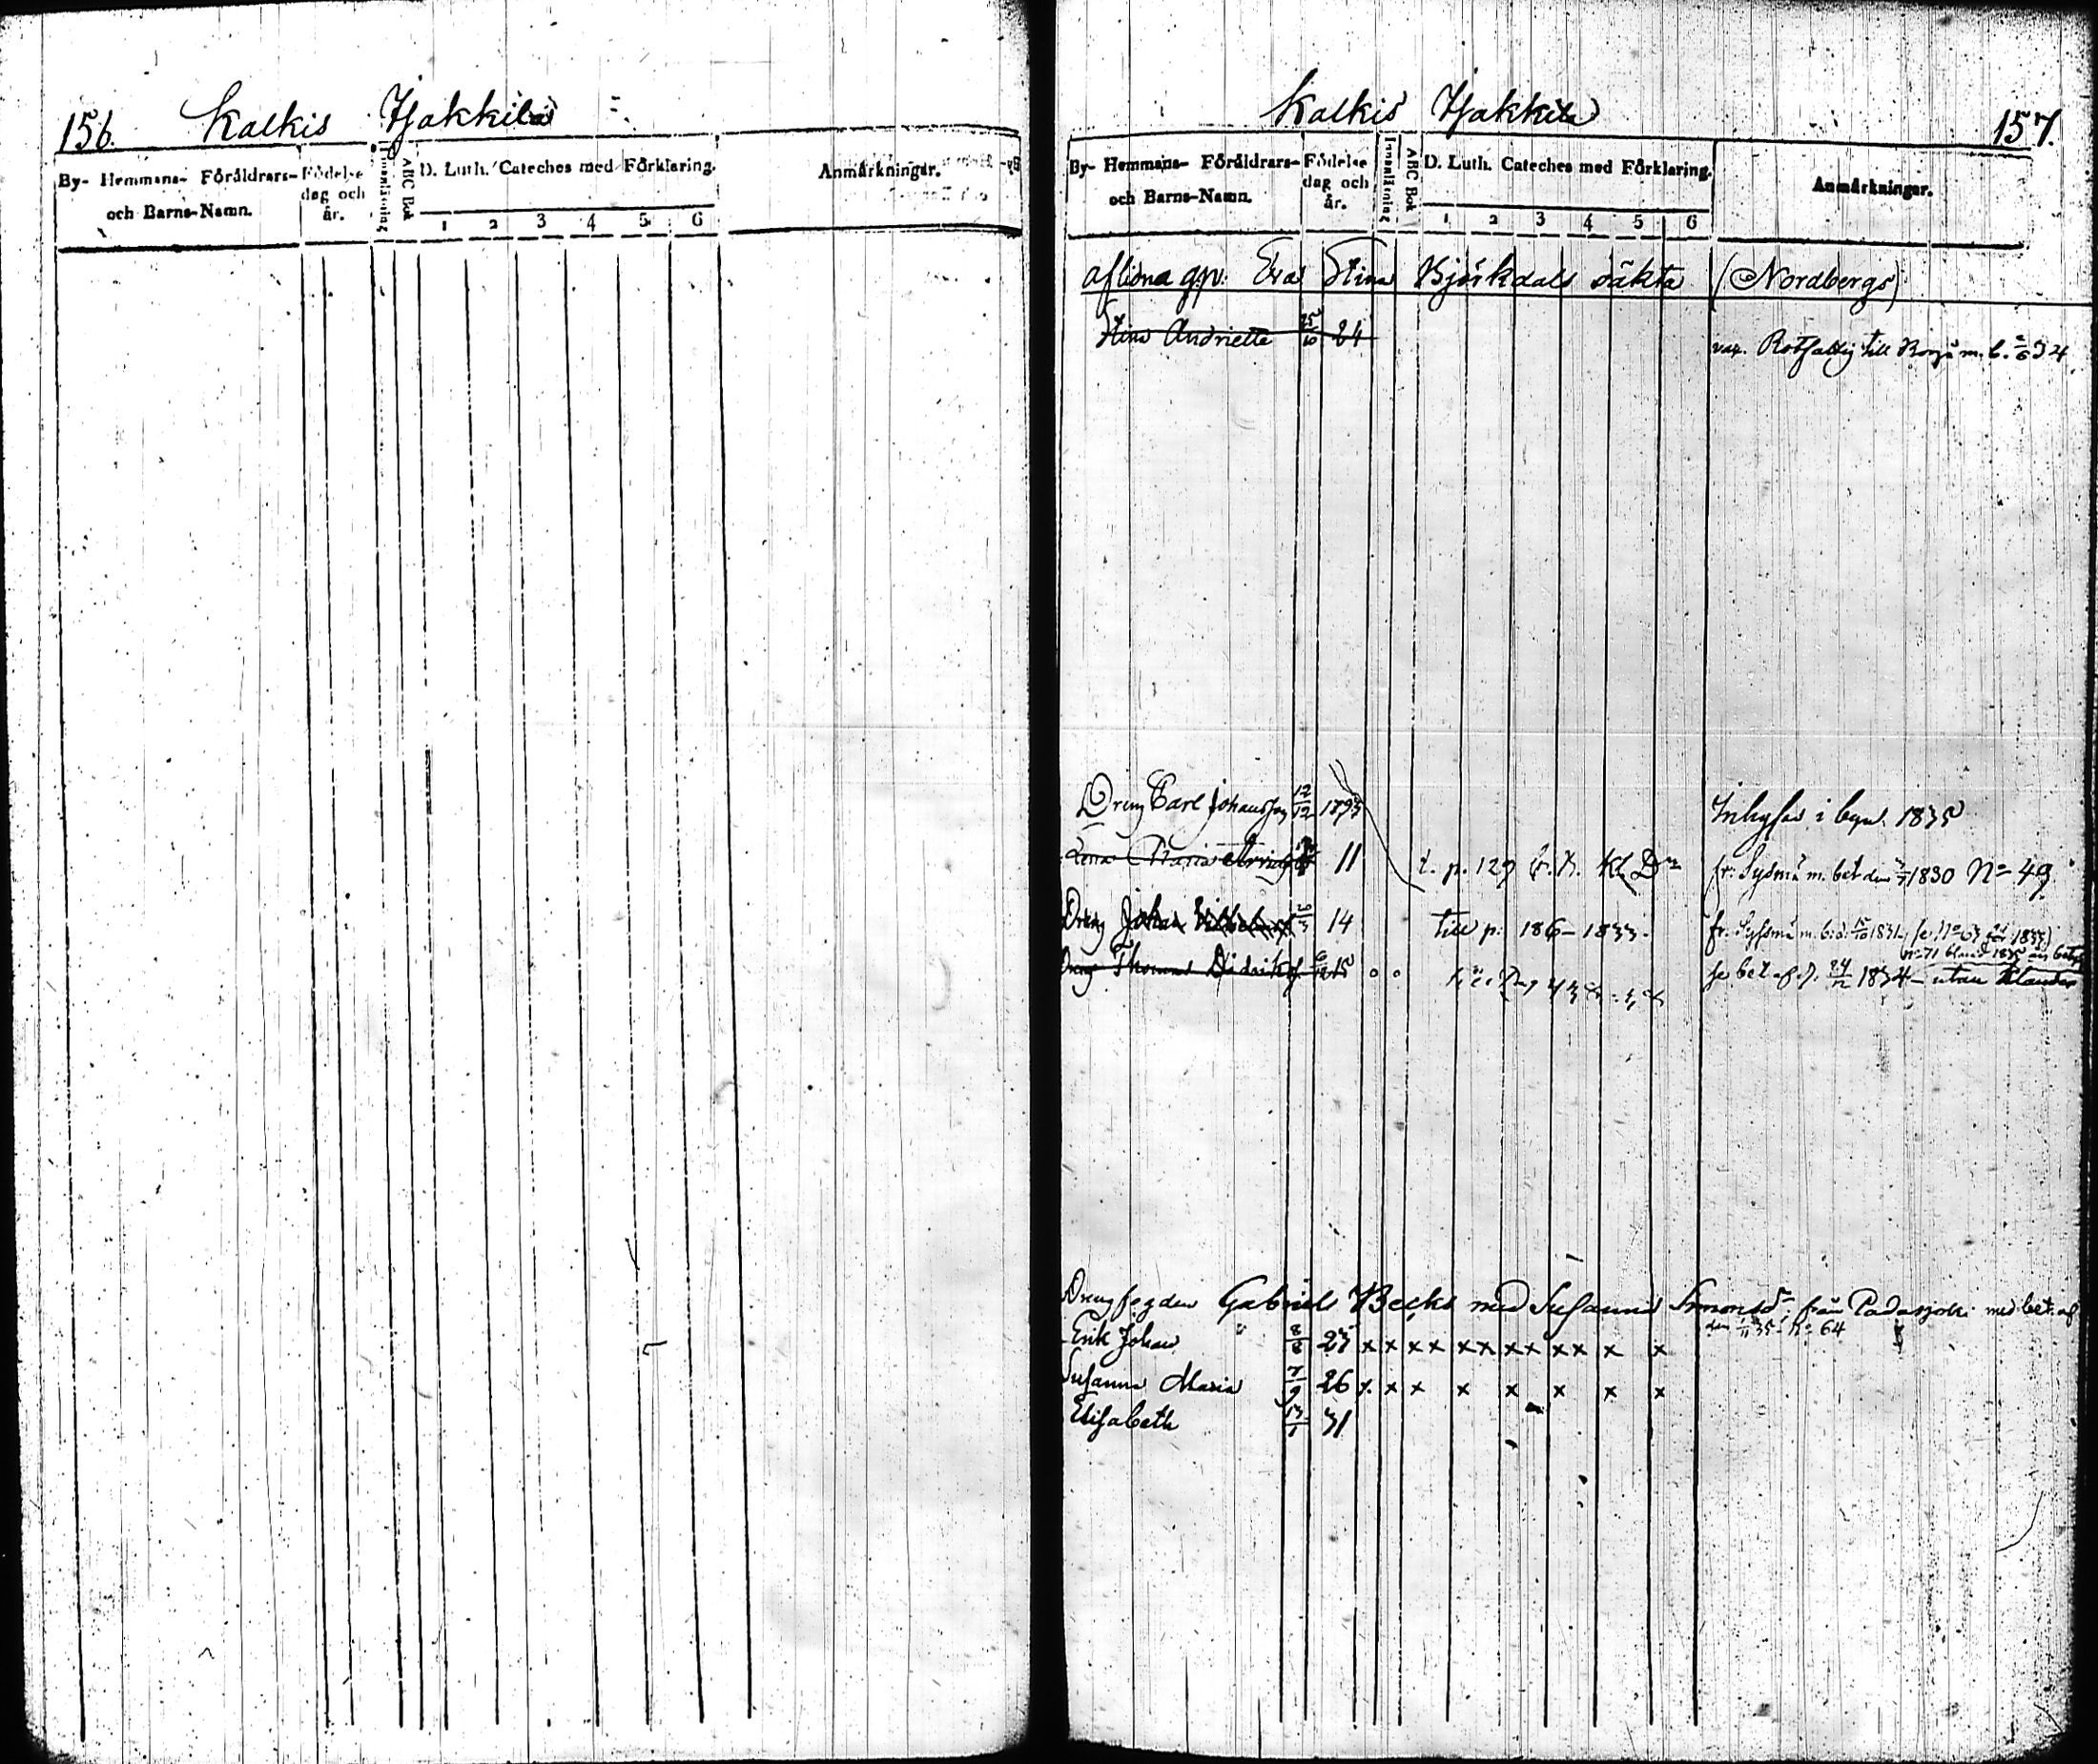 156. Kalkis Tjakkila
By- Hemmans- Föräldrars- och Barns-Namn. Födelse dag och år. Innanläsning ABC Bok D. Luth. Cateches med Förklaring. Anmärkningar.
1 2 3 4 5 6
Kalkis Tjakkila 157.
By- Hemmans- Föräldrars- och Barns-Namn. Födelse dag och år. Innanläsning ABC Bok D. Luth. Cateches med Förklaring. Anmärkningar.
1 2 3 4 5 6
aflidna Eva Stina Björkdals oäkta (Nordbergs)
Stina Andriette 25/10 24 till Borgå m. b. 2/6 34
Dreng Carl Johansson 12/12 1793 Inhyses i byn. 1835
Lena Maria 11 t. p. 129 fr. Sysmä m. bet den 1830 No 49
Dreng Johan 14 till p. 186 - 1833. fr. Sysmä m. b. d. 15/10 1831
Dreng Thomas Didriks 15 bet af d. 24/12 1834 - utan klander
Drengfogden Gabriel Becks med Susanna Simonsdr från Padasjoki med bet. af
den 1/11 35 No 64
Erik Johan 8/8 23 x x x x x x x x x x x x
Susanna Maria 7/9 26 x x x x x x x x
Elisabeth 13/1 31